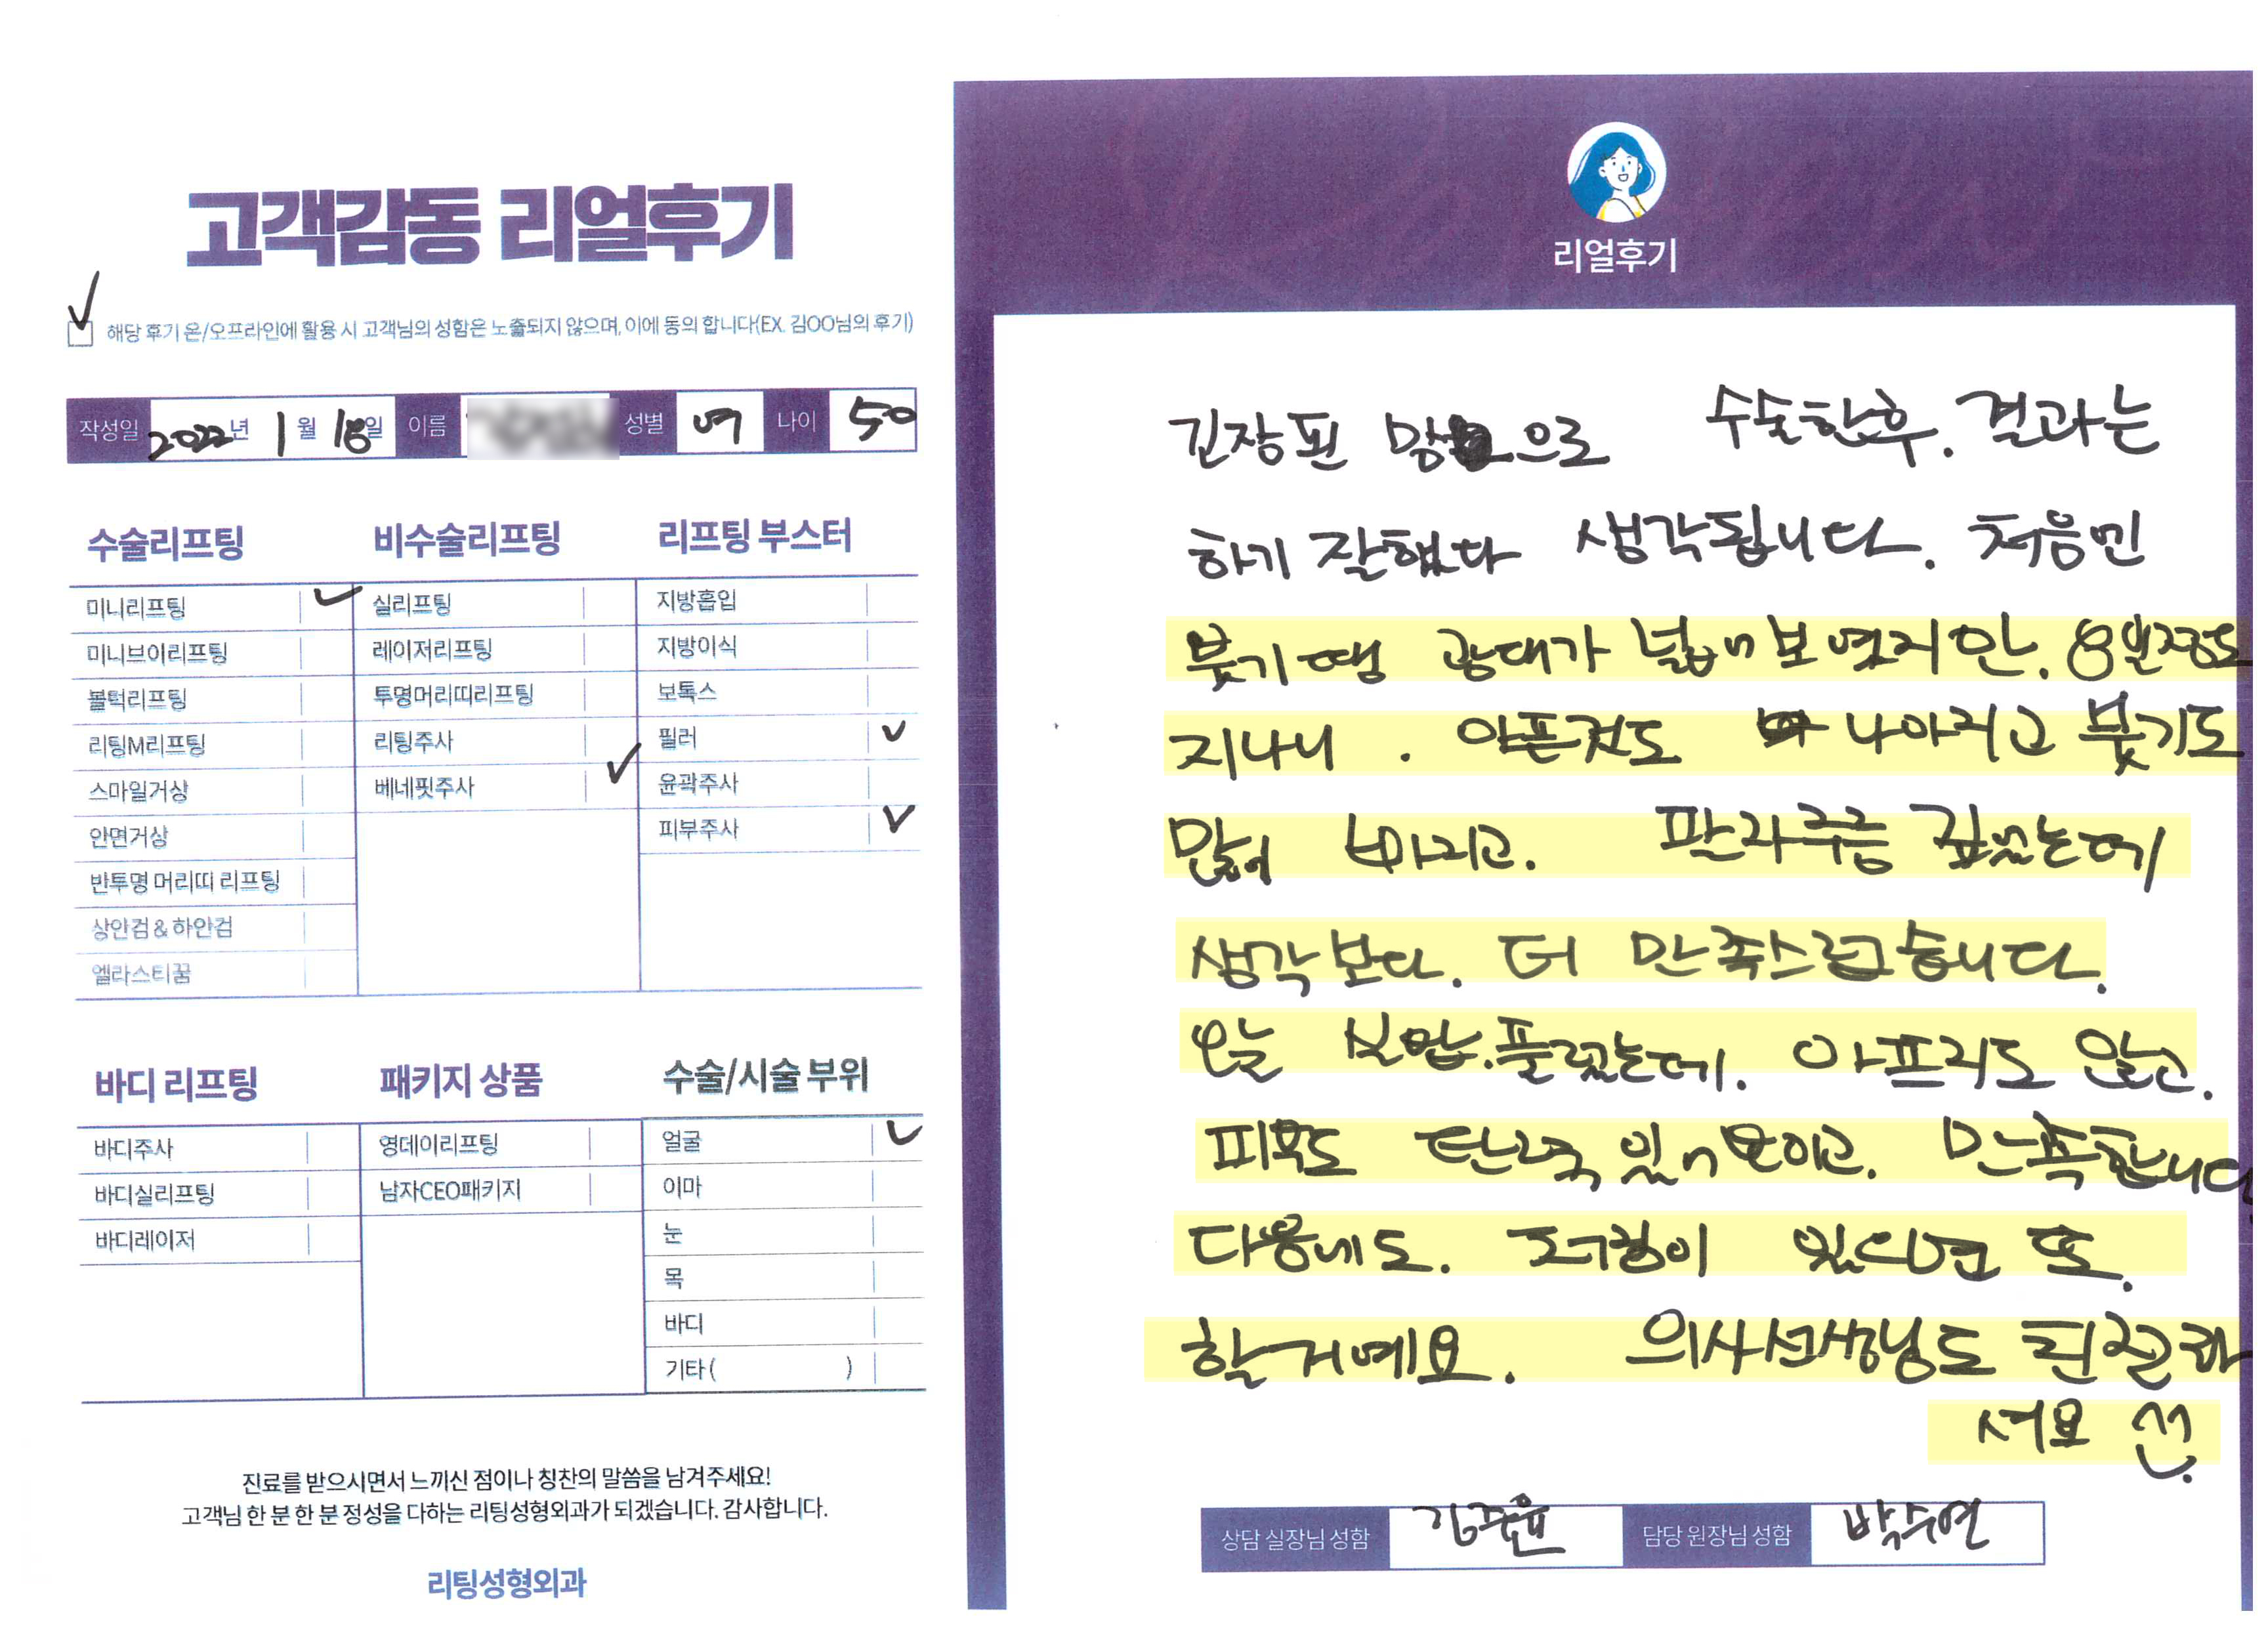 고객감동 리얼후기
해당 후기 온/오프라인에 활용 시 고객님의 성함은 노출되지 않으며, 이에 동의 합니다(EX. 김OO님의 후기)
작성일 2022년 1월 18일 이름 성별 여 나이 50
수술리프팅
미니리프팅
미니브이리프팅
볼턱리프팅
리팅M리프팅
스마일거상
안면거상
반투명 머리띠 리프팅
상안검 & 하안검
엘라스티꿈
비수술리프팅
실리프팅
레이저리프팅
투명머리띠리프팅
리팅주사
베네핏주사
리프팅 부스터
지방흡입
지방이식
보톡스
필러
윤곽주사
피부주사
바디 리프팅
바디주사
바디실리프팅
바디레이저
패키지 상품
영데이리프팅
남자CEO패키지
수술/시술 부위
얼굴
이마
눈
목
바디
기타 ( )
진료를 받으시면서 느끼신 점이나 칭찬의 말씀을 남겨주세요!
고객님 한 분 한 분 정성을 다하는 리팅성형외과가 되겠습니다. 감사합니다.
리팅성형외과
리얼후기
긴장핀 맘으로 수술한후. 결과는
하기 잘했다 생각됩니다. 처음엔
붓기땜 광대가 넓어보였지만. 8일정도
지나니. 아픈것도 나아지고 붓기도
많이 빠지고. 팔자주름 깊었는데
생각보다. 더 만족스럽습니다.
오늘 실밥.풀렀는데. 아프지도 않고.
피부도 탄력 있어보이고. 만족합니다
다음에도. 저렴이 있으면 또.
할거예요. 의사선생님도 친절하
셔요
상담 실장님 성함 김주윤 담당 원장님 성함 박수연